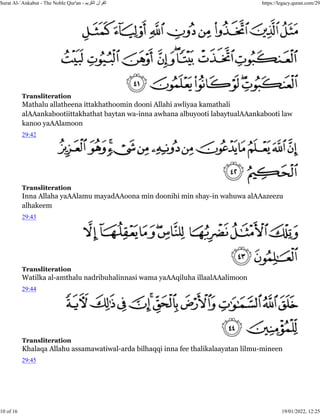 Surat Al-`Ankabut - The Noble Qur'an - القرآن الكريم
https://legacy.quran.com/29
مَثَلُ ٱلَّذِينَ ٱتَّخَذُوا۟ مِن دُونِ ٱللَّهِ أَوْلِيَآءَ كَمَثَلِ
ٱلْعَنكَبُوتِ ٱتَّخَذَتْ بَيْتًا ۖ وَإِنَّ أَوْهَنَ ٱلْبُيُوتِ لَبَيْتُ
ٱلْعَنكَبُوتِ ۖ لَوْ كَانُوا۟ يَعْلَمُونَ ﴿٤١﴾
Transliteration
Mathalu allatheena ittakhathoomin dooni Allahi awliyaa kamathali
alAAankabootiittakhathat baytan wa-inna awhana albuyooti labaytualAAankabooti law
kanoo yaAAlamoon
29:42
إِنَّ ٱللَّهَ يَعْلَمُ مَا يَدْعُونَ مِن دُونِهِۦ مِن شَىْءٍ ۚ وَهُوَ ٱلْعَزِيزُ
ٱلْحَكِيمُ ﴿٤٢﴾
Transliteration
Inna Allaha yaAAlamu mayadAAoona min doonihi min shay-in wahuwa alAAazeezu
alhakeem
29:43
وَتِلْكَ ٱلْأَمْثَٰلُ نَضْرِبُهَا لِلنَّاسِ ۖ وَمَا يَعْقِلُهَآ إِلَّا
ٱلْعَٰلِمُونَ ﴿٤٣﴾
Transliteration
Watilka al-amthalu nadribuhalinnasi wama yaAAqiluha illaalAAalimoon
29:44
خَلَقَ ٱللَّهُ ٱلسَّمَٰوَٰتِ وَٱلْأَرْضَ بِٱلْحَقِّ ۚ إِنَّ فِى ذَٰلِكَ لَءَايَةً
لِّلْمُؤْمِنِينَ ﴿٤٤﴾
Transliteration
Khalaqa Allahu assamawatiwal-arda bilhaqqi inna fee thalikalaayatan lilmu-mineen
29:45
10 of 16
19/01/2022, 12:25